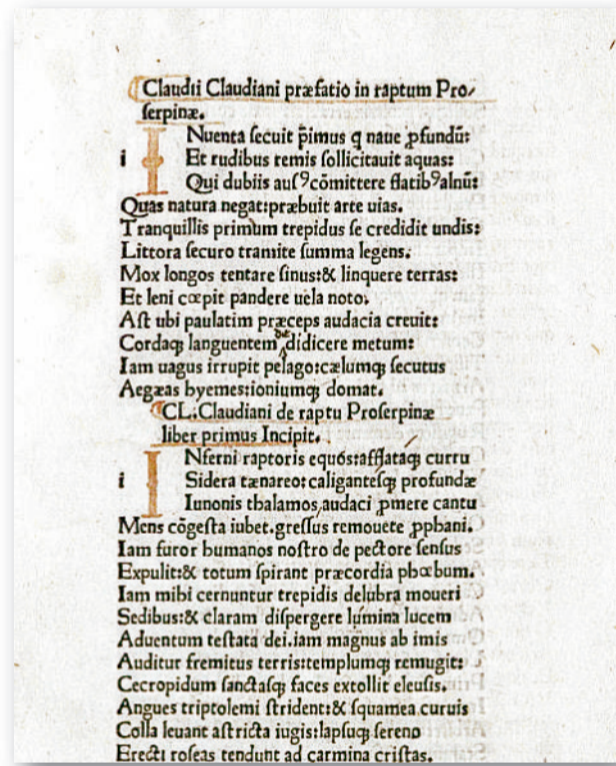 Claudii Claudiani præfatio in raptum Pro/
serpinæ.
i INuenta secuit p̄imus q naue ꝓfundū:
Et rudibus remis sollicitauit aquas:
Qui dubiis ausꝰ cōmittere flatibꝰ alnū:
Quas natura negat: præbuit arte uias.
Tranquillis primum trepidus se credidit undis:
Littora securo tramite summa legens.
Mox longos tentare sinus: & linquere terras:
Et leni cœpit pandere uela noto:
Ast ubi paulatim præceps audacia creuit:
Cordaqꝫ languentem didicere metum:
Iam uagus irrupit pelago: cælumqꝫ secutus
Aegæas hyemes: ioniumqꝫ domat.
CL. Claudiani de raptu Proserpinæ
liber primus Incipit.
i INferni raptoris equos: afflataqꝫ curru
Sidera tænareo: caligantesqꝫ profundæ
Iunonis thalamos, audaci ꝓmere cantu
Mens cōgesta iubet. gressus remouete ꝓphani.
Iam furor humanos nostro de pectore sensus
Expulit: & totum spirant præcordia phœbum.
Iam mihi cernuntur trepidis delubra moueri
Sedibus: & claram dispergere lumina lucem
Aduentum testata dei. iam magnus ab imis
Auditur fremitus terris: templumqꝫ remugit:
Cecropidum sanctasqꝫ faces extollit eleusis.
Angues triptolemi strident: & squamea curuis
Colla leuant astricta iugis: lapsuqꝫ sereno
Erecti roseas tendunt ad carmina cristas.